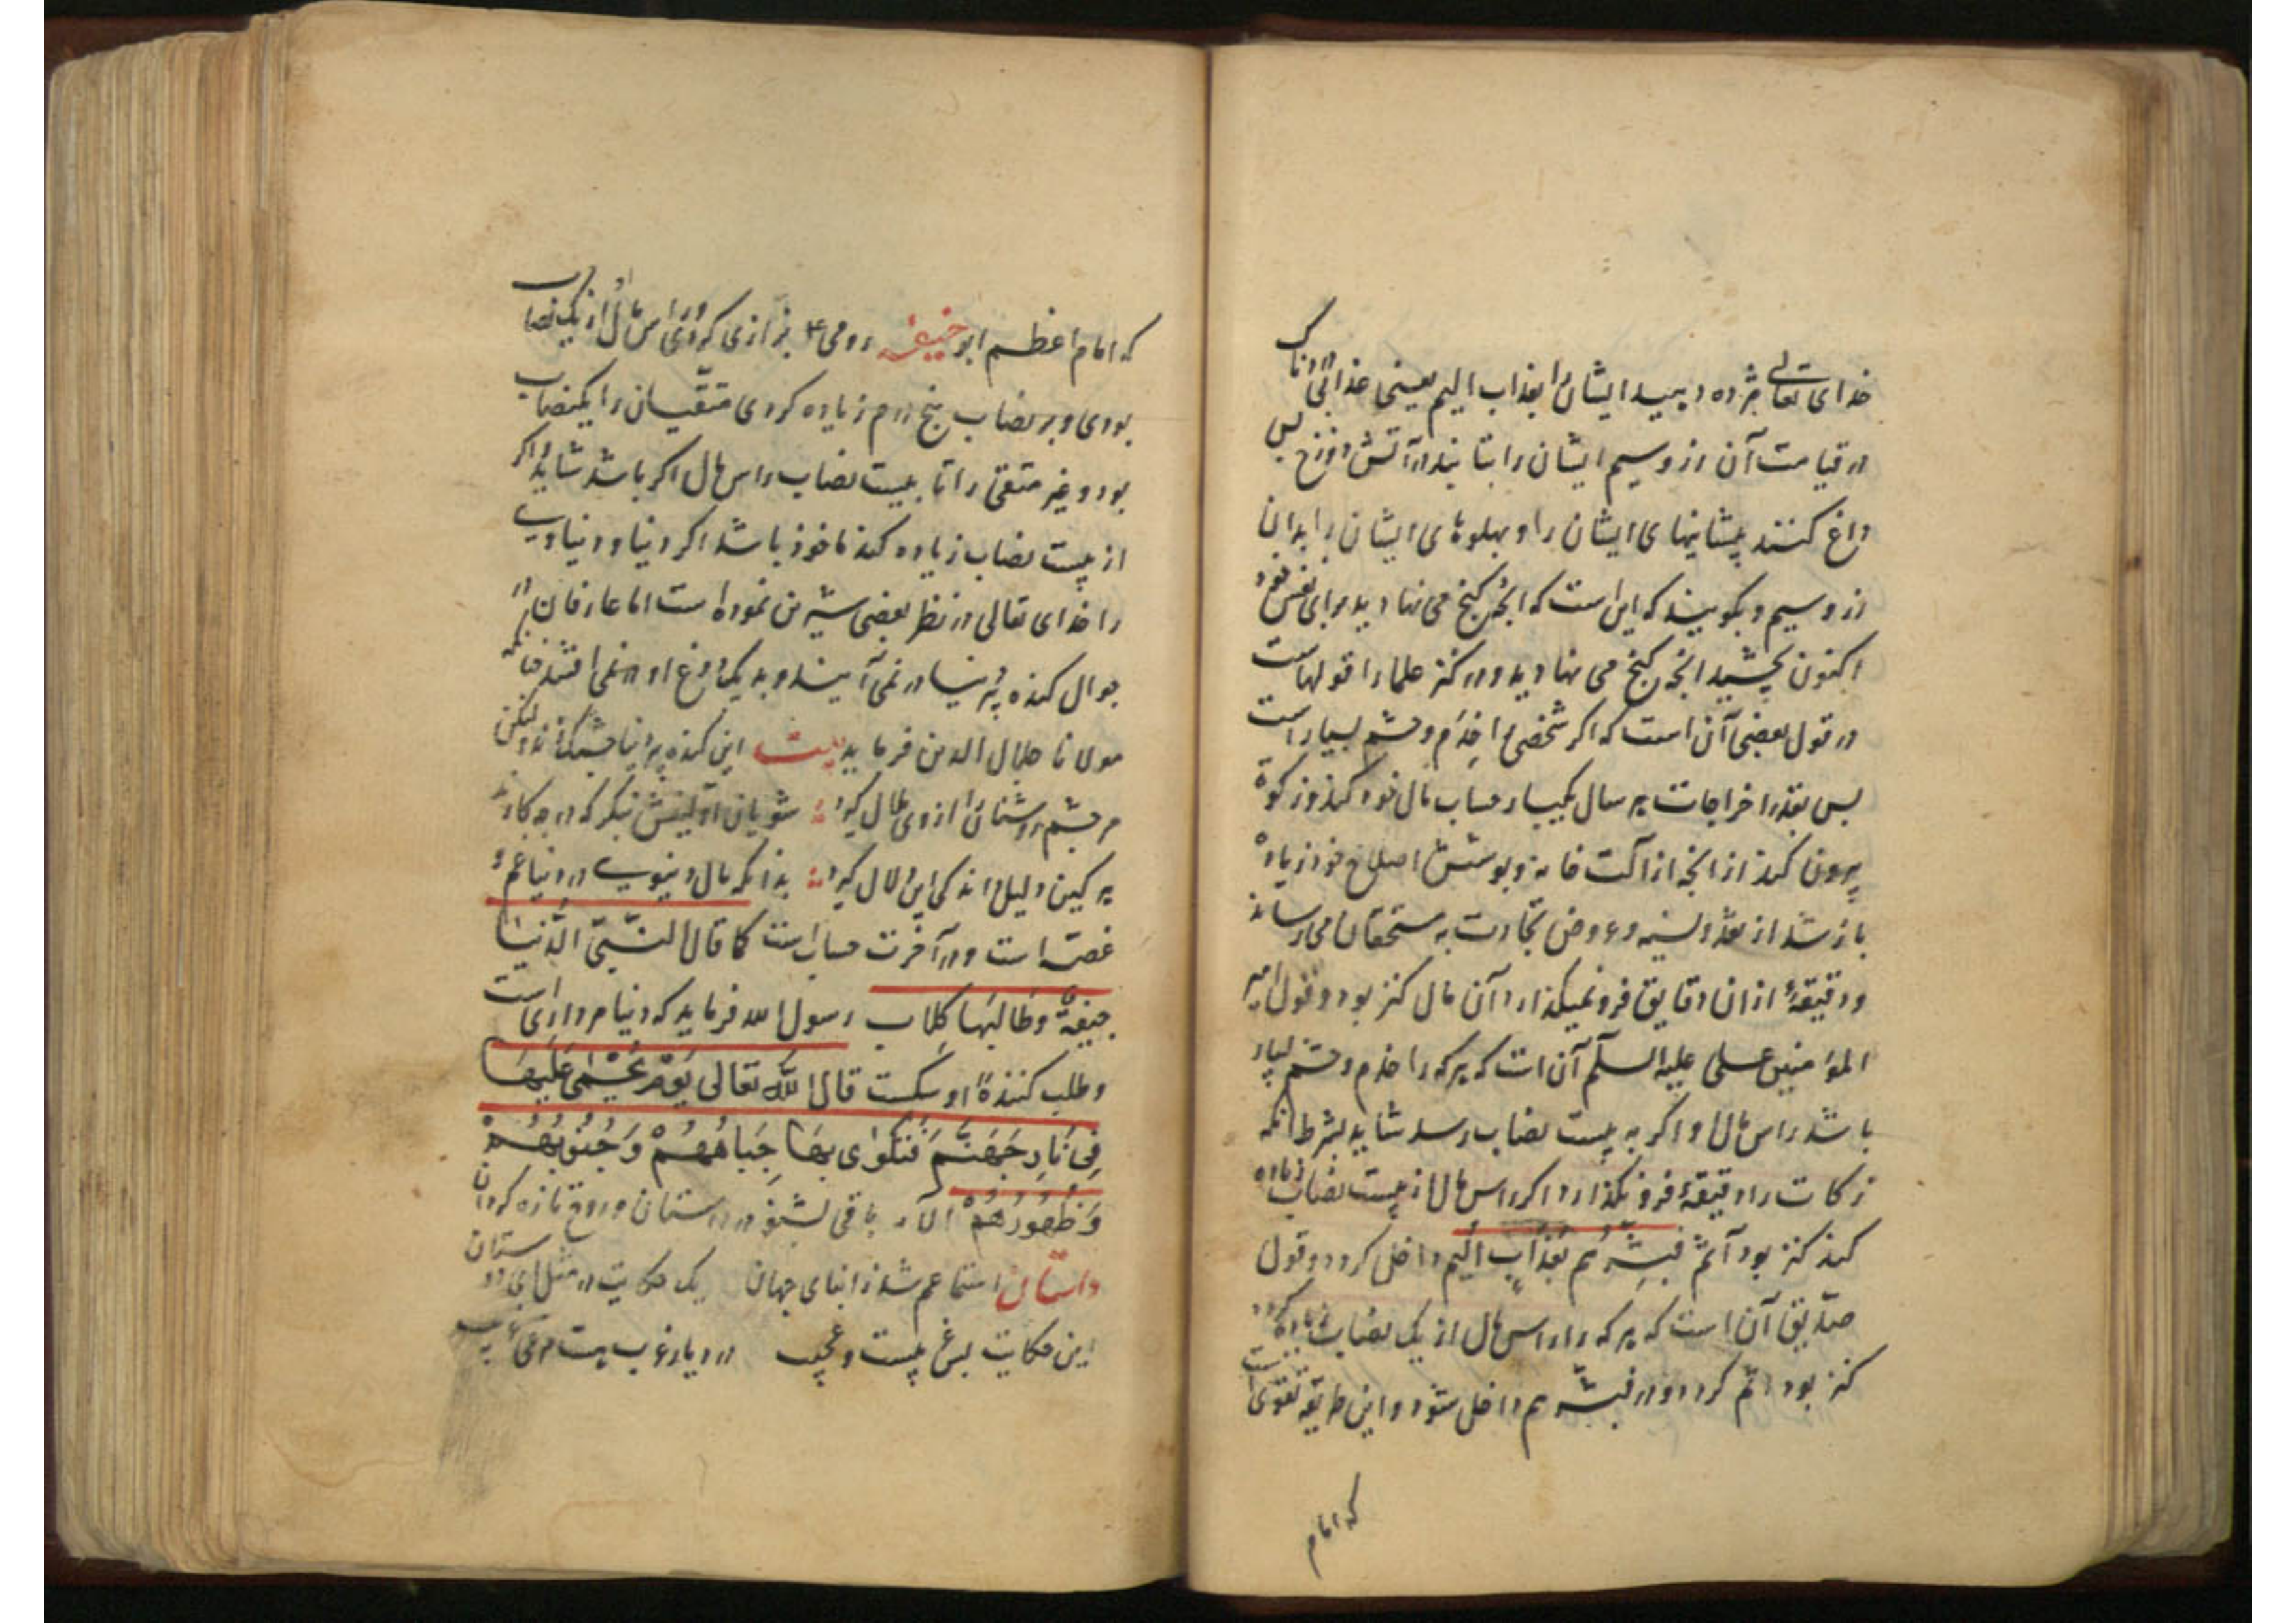 خدای تعالی مژده دهید ایشان را بعذاب الیم یعنی عذابی دردناک
در قیامت آن زر و سیم ایشان را بتابند در آتش دوزخ پس
داغ کنند پیشانیهای ایشان را و پهلوهای ایشان را بدان
زر و سیم و بگویند که این است که انچه گنج می نهادید برای نفس خود
اکنون بچشید انچه گنج می نهادید و در کنز علما را قولهاست
در قول بعضی آن است که اگر شخصی را خدم و حشم بسیار است
پس بقدر اخراجات هر سال یکبار حساب مال خود کند و زکوة
بیرون کند از انچه از آلت خانه و پوشش اصلاح خود زیاده
باشد از نقد و نسیه و عروض تجارت به مستحقان می رساند
و دقیقهٔ ازان دقایق فرو نمیگذارد آن مال کنز بود و قول امیر
المؤمنین علی علیه السلم آن است که هر که را خدم و حشم بسیار
باشد راس مال او اگر به بیست نصاب رسد شاید بشرط انکه
زکات را دقیقهٔ فرو نگذارد اگر راس مال از بیست نصاب زیاده
کند کنز بود آثم فبشرهم بعذاب الیم داخل گردد و قول
صدیق آن است که هر که را راس مال از یک نصاب زیاده گردد
کنز بود اثم گردد و در فبشرهم داخل شود و این طریقه تقوی است
که امام
که امام اعظم ابو حنیفه بزازی کردی و راس مال او از یک نصاب
بودی و بر نصاب پنج درم زیاده کردی متقیان را یکنصاب
بود و غیر متقی را تا بیست نصاب راس مال اگر باشد شاید و اگر
از بیست نصاب زیاده کند ماخوذ باشد اگر دنیا و دنیاوی
را خدای تعالی در نظر بعضی شیرین نموده است اما عارفان در
جوال گنده پیر دنیا در نمی آیند و بدیگ دوغ او در نمی افتند چنانکه
مولانا جلال الدین فرماید بیت این گنده پیر دنیا چشمک زند ولیکن
مر چشم روشنان را از وی ملال گیرد شویان اولینش بنگر که در چه کارند
هر کین دلیل داند کی این دلال گیرد بدانکه مال دنیوی در دنیا غم و
غصه است و در آخرت حساب است کما قال النبی الدنیا
جیفة وطالبها کلاب رسول الله فرماید که دنیا مرداری است
و طلب کنندهٔ او سگست قال الله تعالی یَوْمَ یُحْمٰی عَلَیْهَا
فِی نَارِ جَهَنَّمَ فَتُکْوٰی بِهَا جِبَاهُهُمْ وَجُنُوبُهُمْ
وَظُهُورُهُمْ الآیه باقی بشنو در داستان و روح تازه گردان
داستان استماعم شد ز ابنای جهان یک حکایت در مثل ای دوستان
این حکایت بس غریبست و عجیب در دیار غرب هست مرغی غریب